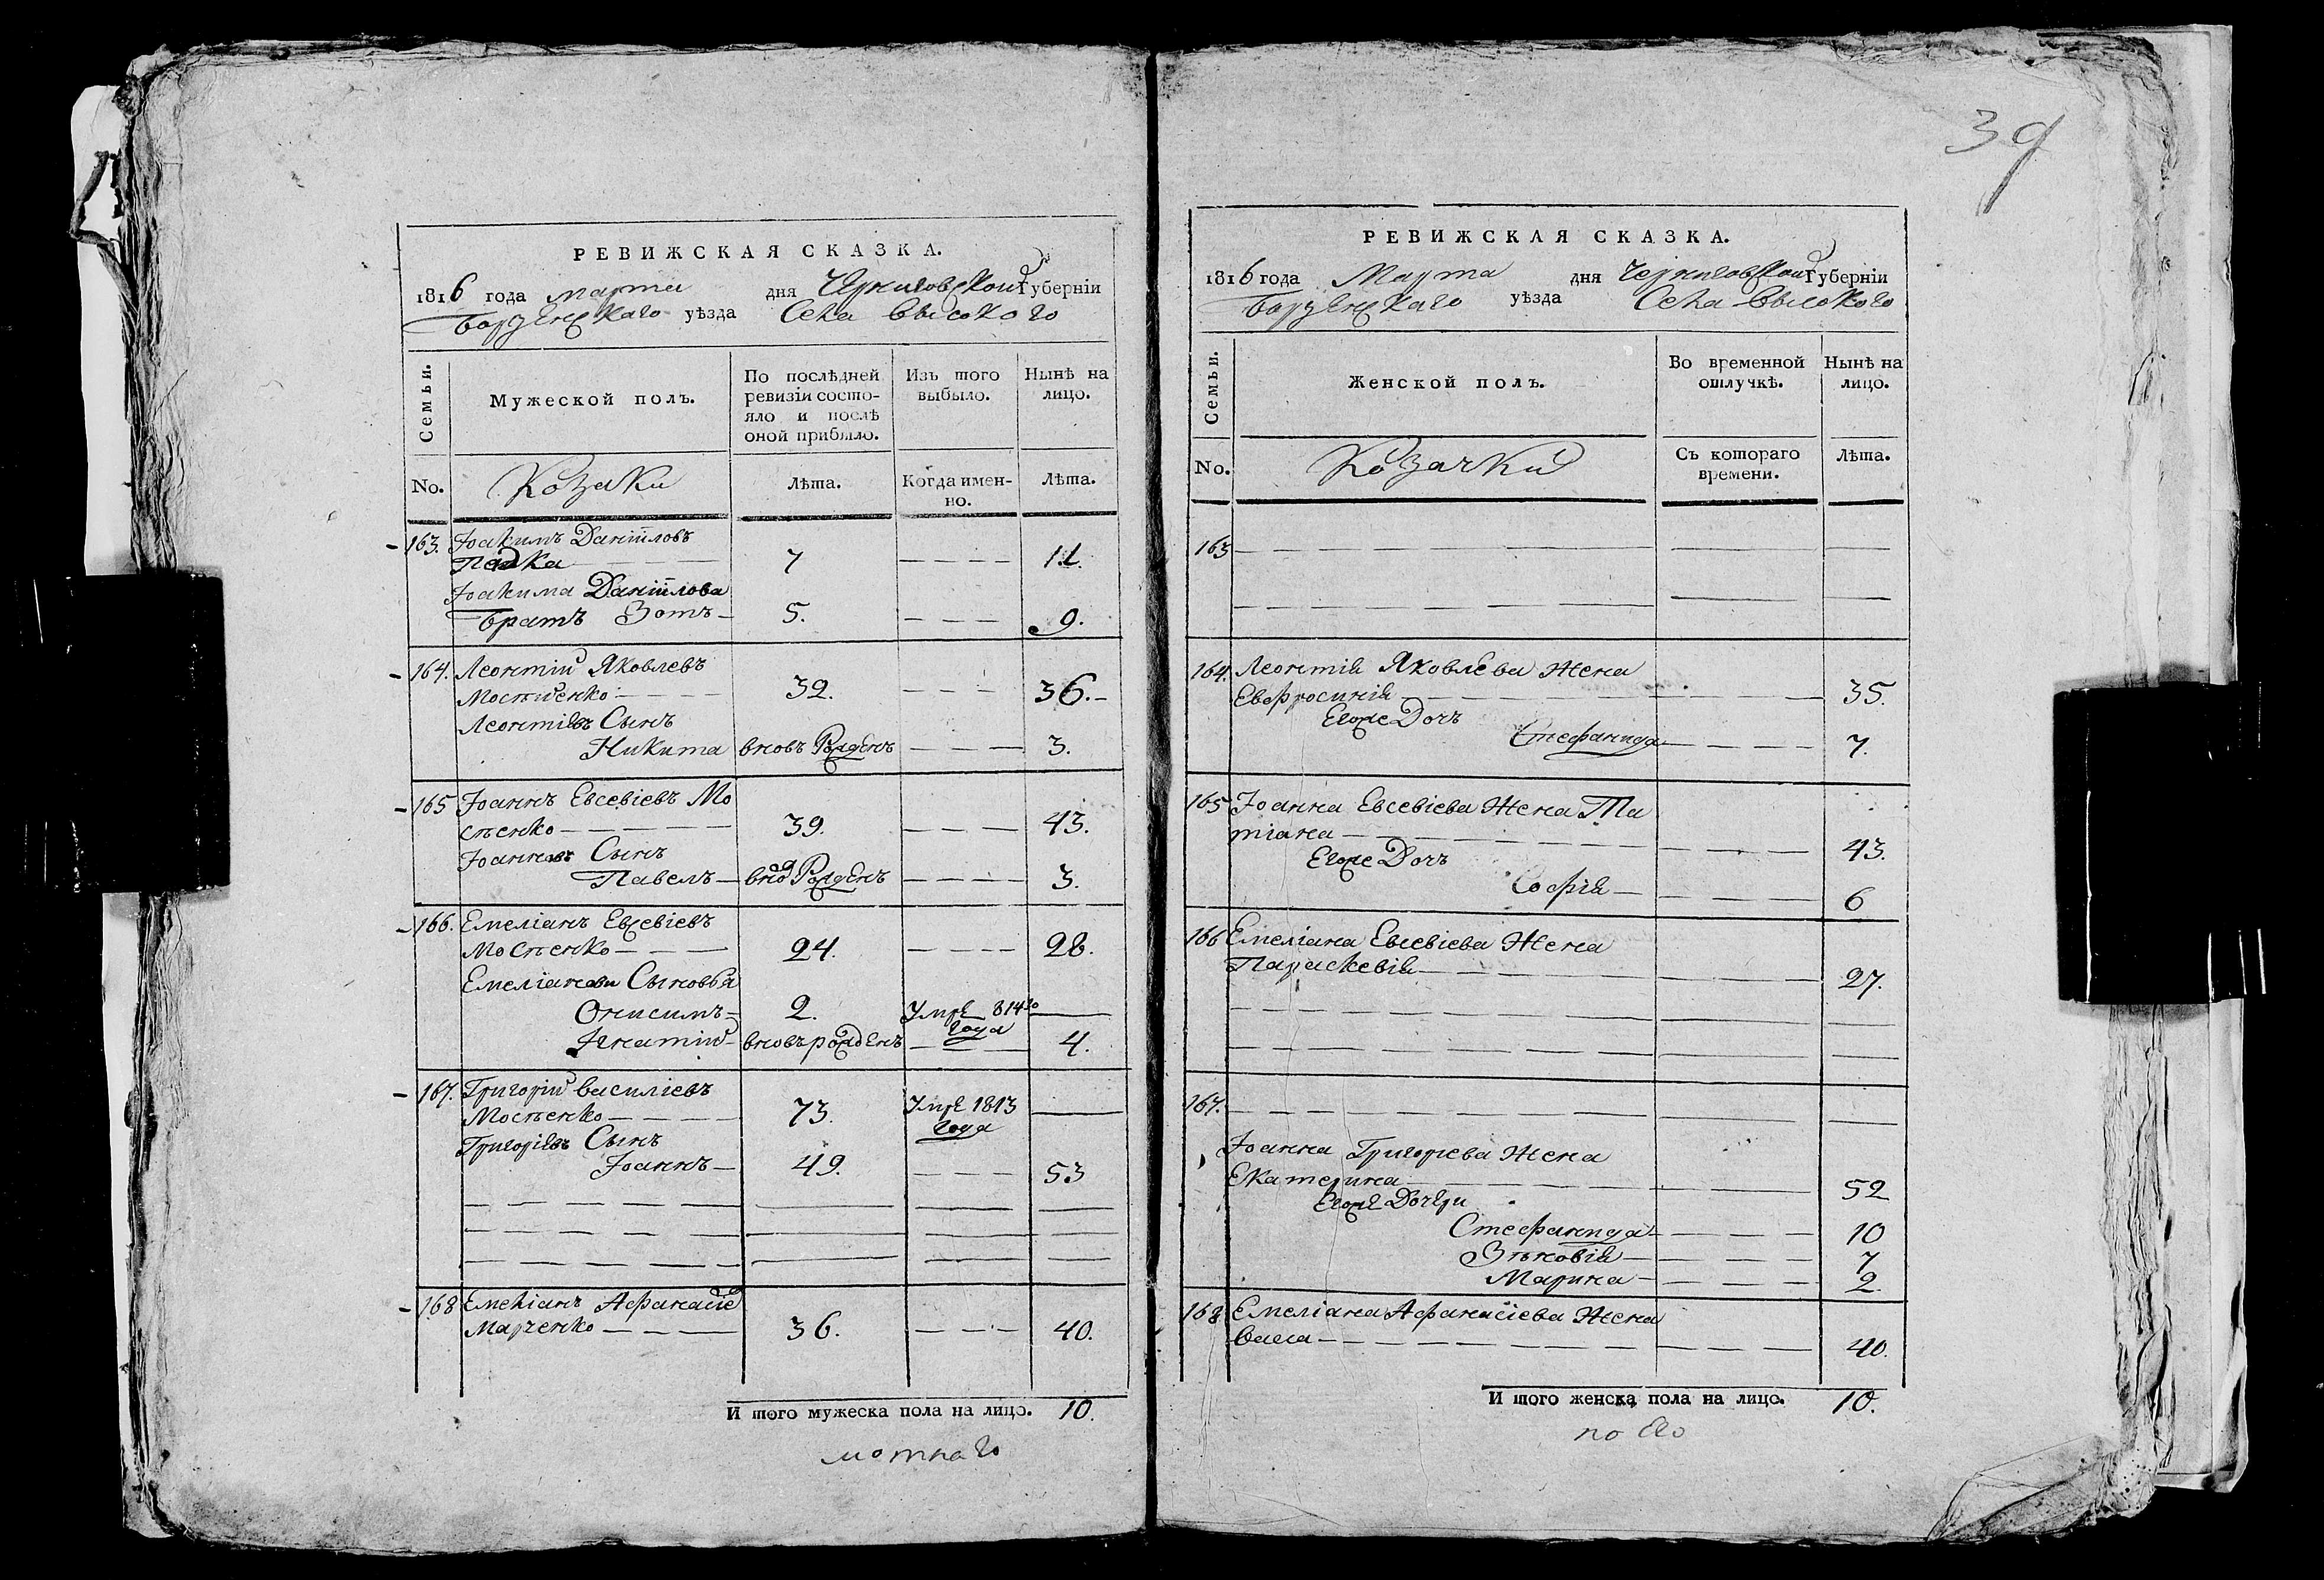 39
РЕВИЖСКАЯ СКАЗКА.
1816 года Марта дня Черниговской Губерніи
Борзенскаго уѣзда Села Высокого
Семьи.
Мужеской полъ.
По послѣдней ревизіи состояло и послѣ оной прибыло.
Изъ того выбыло.
Нынѣ на лицо.
No.
Козаки
Лѣта.
Когда именно.
Лѣта.
163. Іоакимъ Даніиловъ
7 11.
Іоакима Даніилова
братъ Зотъ 5. 9.
164. Леонтий Яковлевъ
32. 36.
Леонтіевъ Сынъ
Никита вновь Рожденъ 3.
165 Іоаннъ Евсевіевъ Мо
сѣенко 39. 43.
Іоанновъ Сынъ
Павелъ Рожденъ 3.
166. Емеліанъ Евсевіевъ
Мосѣенко 24. 28.
Емеліановы Сыновья
Онисимъ 2. Умре 814го
года
Игнатий вновь рожденъ 4.
167. Григорий Василіевъ
Мосѣенко 73. Умре 1813
года
Григоріевъ Сынъ
Іоаннъ 49. 53
168 Емеліанъ Афанасіе
Марченко 36. 40.
И того мужеска пола на лицо. 10.
РЕВИЖСКАЯ СКАЗКА.
1816 года Марта дня Черниговской Губерніи
Борзенскаго уѣзда Села Высокого
Семьи.
Женской полъ.
Во временной отлучкѣ.
Нынѣ на лицо.
No.
Козачки
Съ котораго времени.
Лѣта.
163
164. Леонтія Яковлева Жена
Евфросинія 35.
Егоже Дочь
Стефанида 7.
165 Іоанна Евсевіева Жена Та
тіана 43.
Егоже Дочь
Софія 6
166 Емеліана Евсевіева Жена
Параскевія 27.
167.
Іоанна Григорьева Жена
Екатерина 52
Егоже Дочери
Стефанида 10
Зѣновія 7
Марина 2.
168 Емеліана Афанасіева Жена
Васса 40.
И того женска пола на лицо. 10.
по его